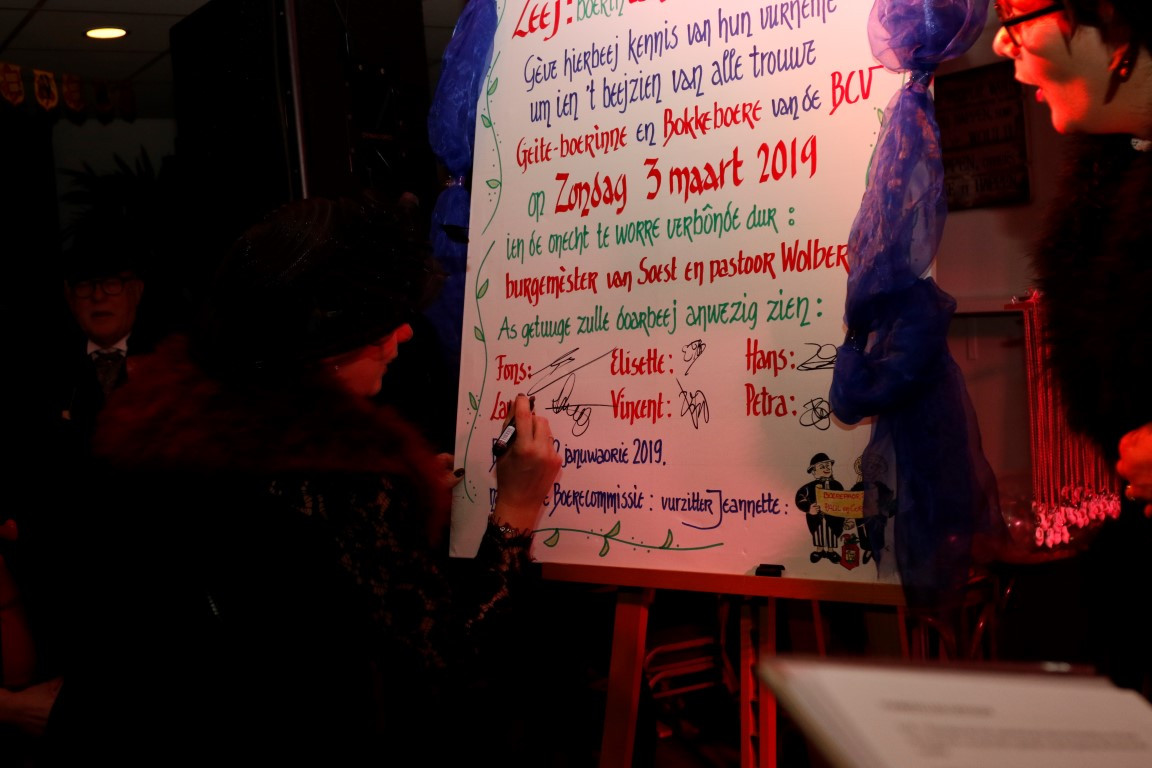 Leef: boerin
Gève hierbeej kennis van hun vurneme
um ien 't beejzien van alle trouwe
Geite-boerinne en Bokkeboere van de BCV
op Zondag 3 maart 2019
ien de onecht te worre verbônde dur :
burgemèster van Soest en pastoor Wolber
As getuuge zulle daorbeej anwezig zien :
Fons: Elisette: Hans:
La Vincent: Petra:
januwaorie 2019.
Boerecommissie : vurzitter Jeannette :
BOEREPAOR